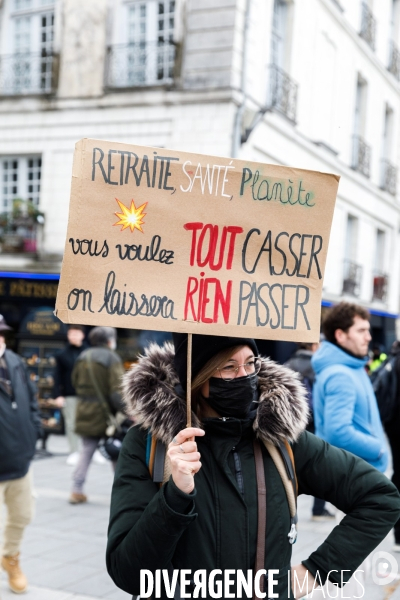 RETRAITE, SANTÉ, Planète
vous voulez TOUT CASSER
on laissera RIEN PASSER
PÂTISSERIE
DIVERGENCE IMAGES